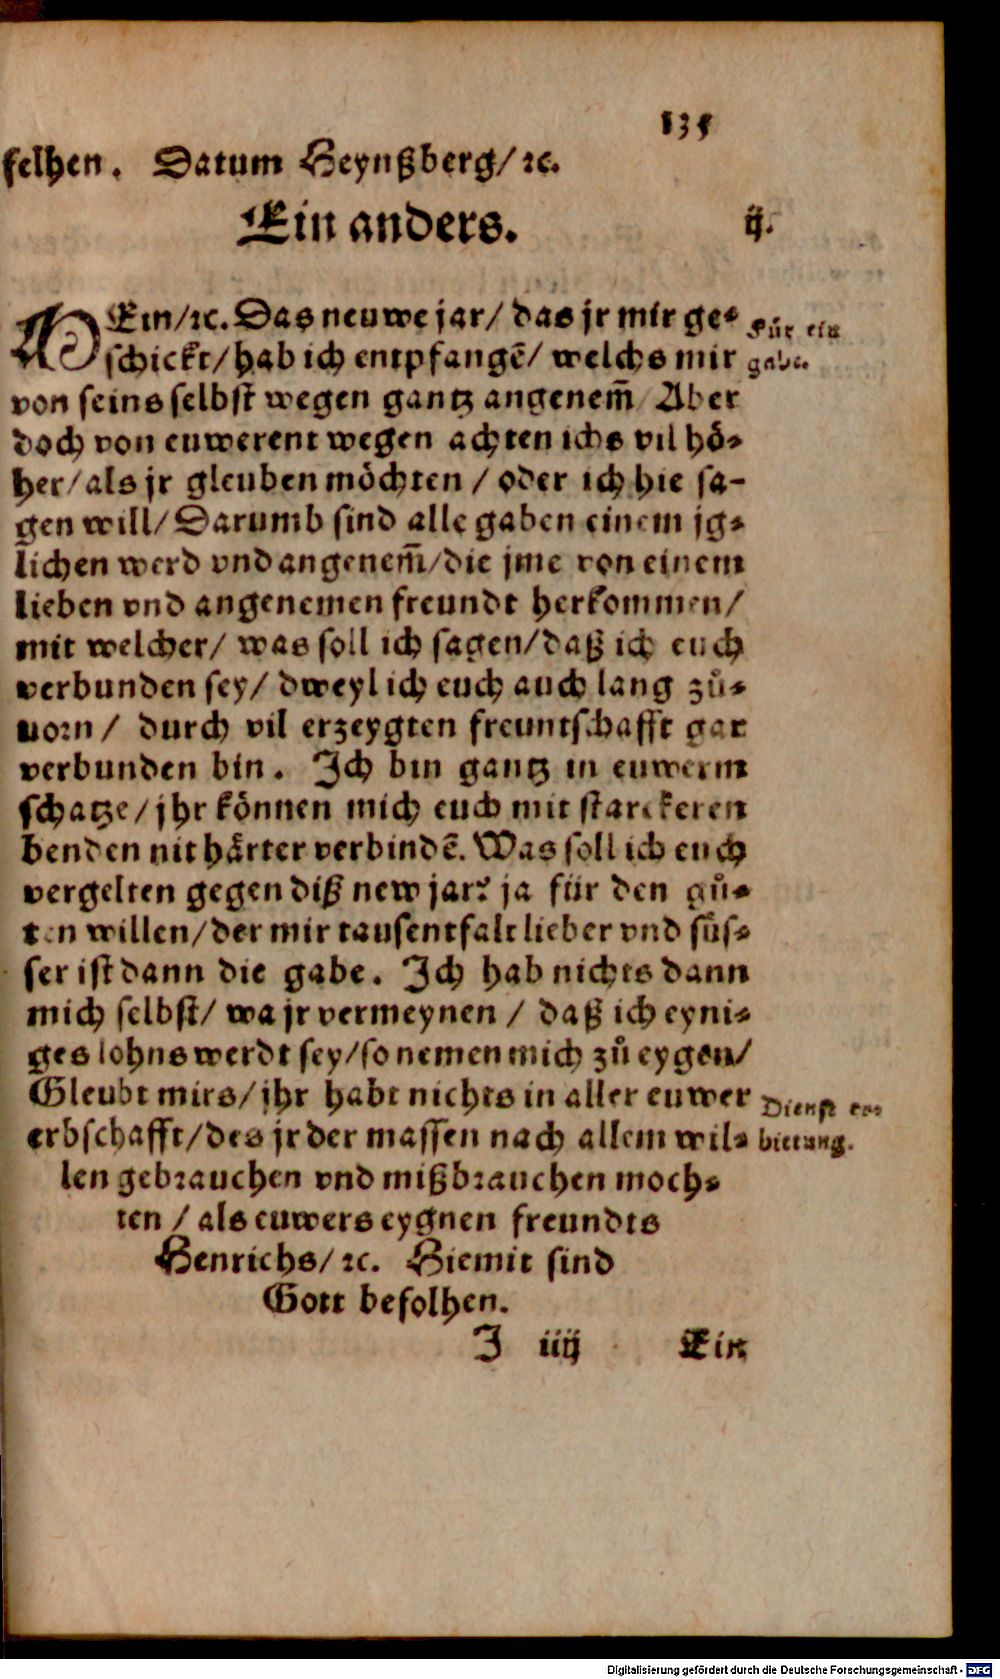 135
felhen. Datum Heynßberg/ ꝛc.
Ein anders. ij.
MEin/ꝛc. Das neuwe jar/ das jr mir ge⸗ Für ein
schickt/ hab ich entpfangē/ welchs mir gabe.
von seins selbst wegen gantz angenem̄/ Aber
doch von euwerent wegen achten ichs vil hö⸗
her/ als jr gleuben möchten / oder ich hie sa-
gen will/ Darumb sind alle gaben einem jg⸗
lichen werd vnd angenem̄/die jme von einem
lieben vnd angenemen freundt herkommen/
mit welcher/ was soll ich sagen/daß ich euch
verbunden sey/ dweyl ich euch auch lang zů⸗
uorn / durch vil erzeygten freuntschafft gar
verbunden bin. Ich bin gantz in euwerm
schatze/ jhr können mich euch mit starckeren
benden nit härter verbindē. Was soll ich euch
vergelten gegen diß new jar? ja für den gů⸗
ten willen/der mir tausentfalt lieber vnd süs⸗
ser ist dann die gabe. Ich hab nichts dann
mich selbst/ wa jr vermeynen / daß ich eyni⸗
ges lohns werdt sey/so nemen mich zů eygen/
Gleubt mirs/ jhr habt nichts in aller euwer Dienst er⸗
erbschafft/des jr der massen nach allem wil⸗ bietung.
len gebrauchen vnd mißbrauchen moch⸗
ten / als euwers eygnen freundts
Henrichs/ ꝛc. Hiemit sind
Gott befolhen.
J iiij Ein
Digitalisierung gefördert durch die Deutsche Forschungsgemeinschaft - DFG